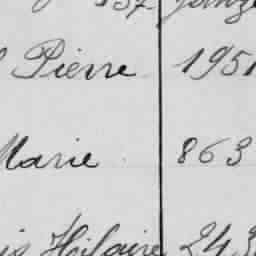 Pierre 1951
Marie 863
Hilaire 243